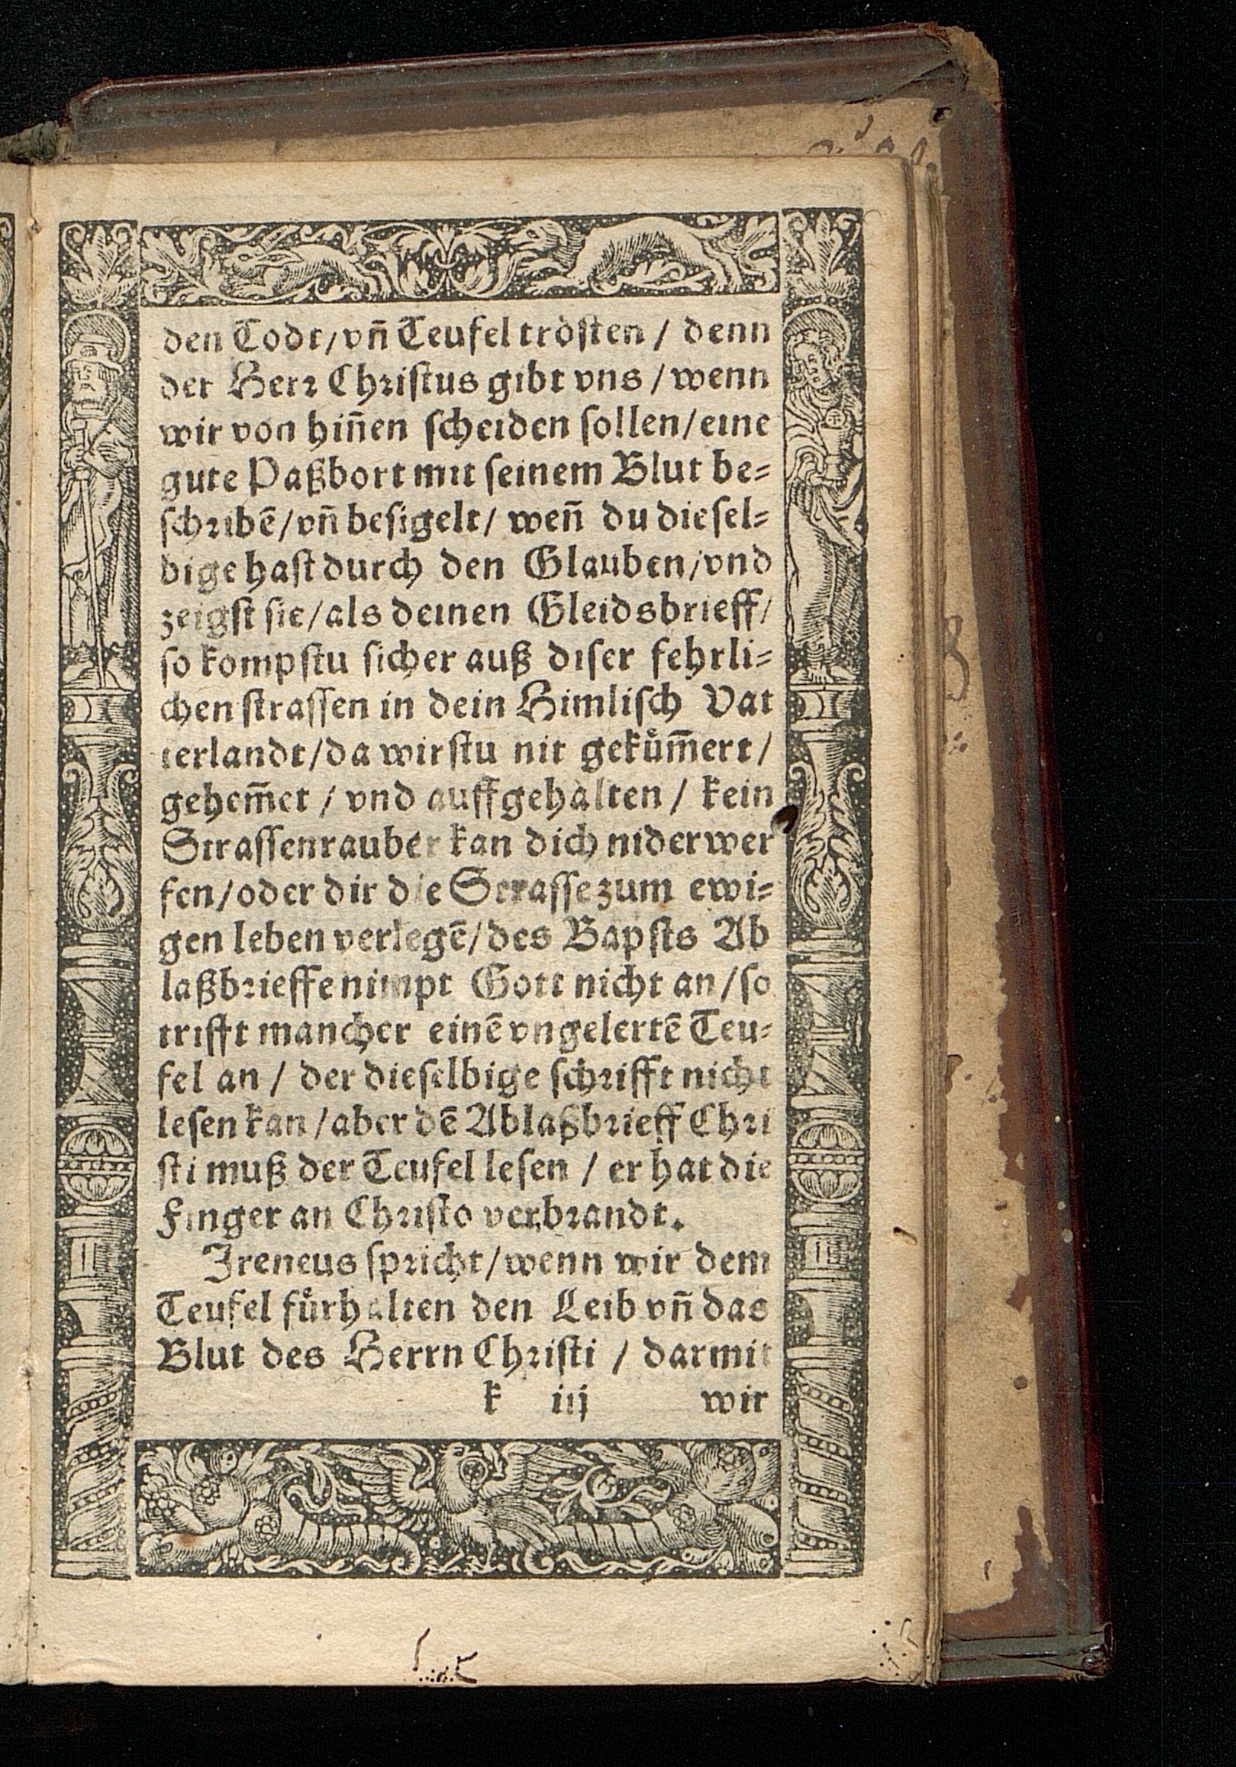 den Todt/vn̄ Teufel trösten / denn
der Herr Christus gibt vns / wenn
wir von hin̄en scheiden sollen/eine
gute Paßbort mit seinem Blut be-
schribē/vn̄ besigelt/ wen̄ du diesel-
bige hast durch den Glauben/vnd
zeigst sie/als deinen Gleidsbrieff/
so kompstu sicher auß diser fehrli-
chen strassen in dein Himlisch Vat
terlandt/da wirstu nit geküm̄ert/
gehem̄et / vnd auffgehalten / kein
Strassenrauber kan dich niderwer
fen/oder dir die Strasse zum ewi-
gen leben verlegē/des Bapsts Ab
laßbrieffe nimpt Gott nicht an/so
trifft mancher einē vngelertē Teu-
fel an / der dieselbige schrifft nicht
lesen kan/aber dē Ablaßbrieff Chri
sti muß der Teufel lesen / er hat die
Finger an Christo verbrandt.
Ireneus spricht/wenn wir dem
Teufel fürhalten den Leib vn̄ das
Blut des Herrn Christi / darmit
k iij wir